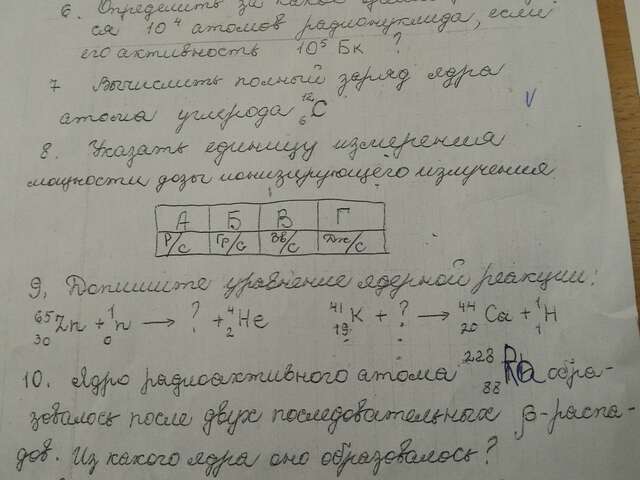 6. Определить за какое
ся 10⁴ атомов радионуклида, если
его активность 10⁵ Бк ?
7 Вычислить полный заряд ядра
атома углерода ¹²₆C
V
8. Указать единицу измерения
мощности дозы ионизирующего излучения
А Б В Г
Р/с Гр/с Зв/с Дж/с
9, Допишите уравнение ядерной реакции:
⁶⁵₃₀Zn + ¹₀n → ? + ⁴₂He ⁴¹₁₉K + ? → ⁴⁴₂₀Ca + ¹₁H
10. Ядро радиоактивного атома ²²⁸₈₈Ra обра-
зовалось после двух последовательных β-распа-
дов. Из какого ядра оно образовалось?